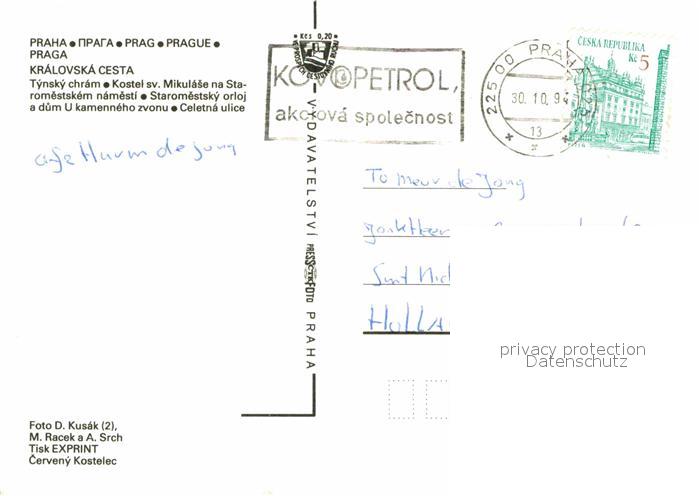 PRAHA ● ПРАГА ● PRAG ● PRAGUE ●
PRAGA
KRÁLOVSKÁ CESTA
Týnský chrám ● Kostel sv. Mikuláše na Sta-
roměstském náměstí ● Staroměstský orloj
a dům U kamenného zvonu ● Celetná ulice
de Jong
Foto D. Kusák (2),
M. Racek a A. Srch
Tisk EXPRINT
Červený Kostelec
● Kčs 0,20 ●
VYDAVATELSTVÍ PRESSFOTO PRAHA
KOVOPETROL,
akciová společnost
225 00 PRAHA
30.10.94
13
ČESKÁ REPUBLIKA
Kč 5
To de Jong
Sint
HOLLA
privacy protection
Datenschutz